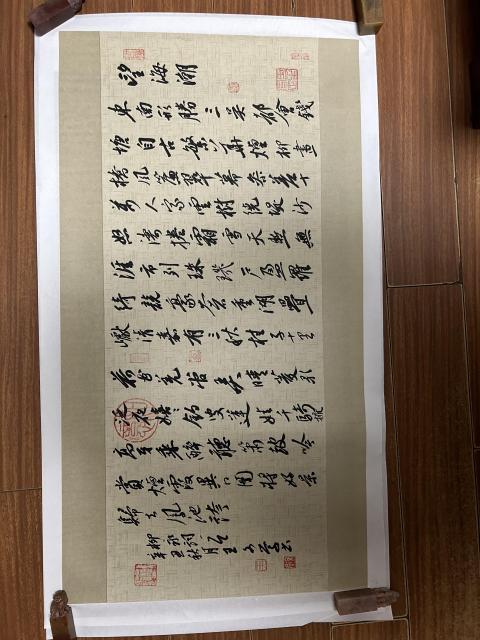 望海潮
東南形勝三吳都會錢
塘自古繁華煙柳畫
橋風簾翠幕參差十
萬人家雲樹繞堤沙
怒濤捲霜雪天塹無
涯市列珠璣戶盈羅
綺競豪奢重湖疊
巘清嘉有三秋桂子十里
荷花羌管弄晴菱歌
泛夜嬉嬉釣叟蓮娃千騎擁
高牙乘醉聽簫鼓吟
賞煙霞異日圖將好景
歸去鳳池誇
柳永詞
辛丑秋月